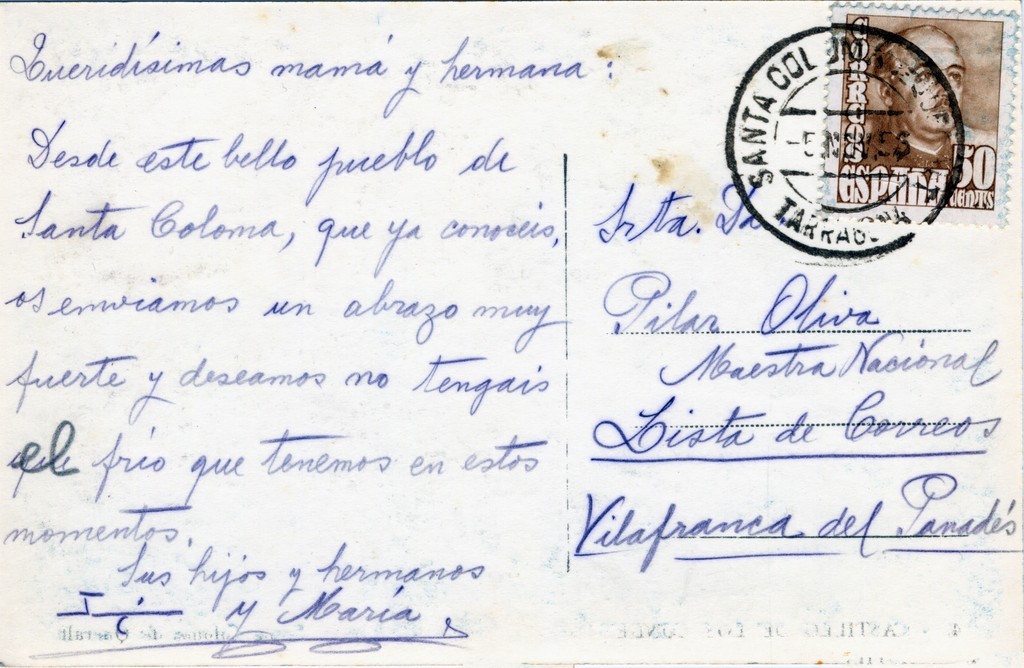 Queridísimas mamá y hermana:
Desde este bello pueblo de
Santa Coloma, que ya conoceis,
os enviamos un abrazo muy
fuerte y deseamos no tengais
el frío que tenemos en estos
momentos.
Sus hijos y hermanos
y María
CORREOS
ESPAÑA
50
CENTS
SANTA COL
TARRAGONA
Srta. Da
Pilar Oliva
Maestra Nacional
Lista de Correos
Vilafranca del Panadés
4. - CASTILLO DE LOS CONDES
de Queralt